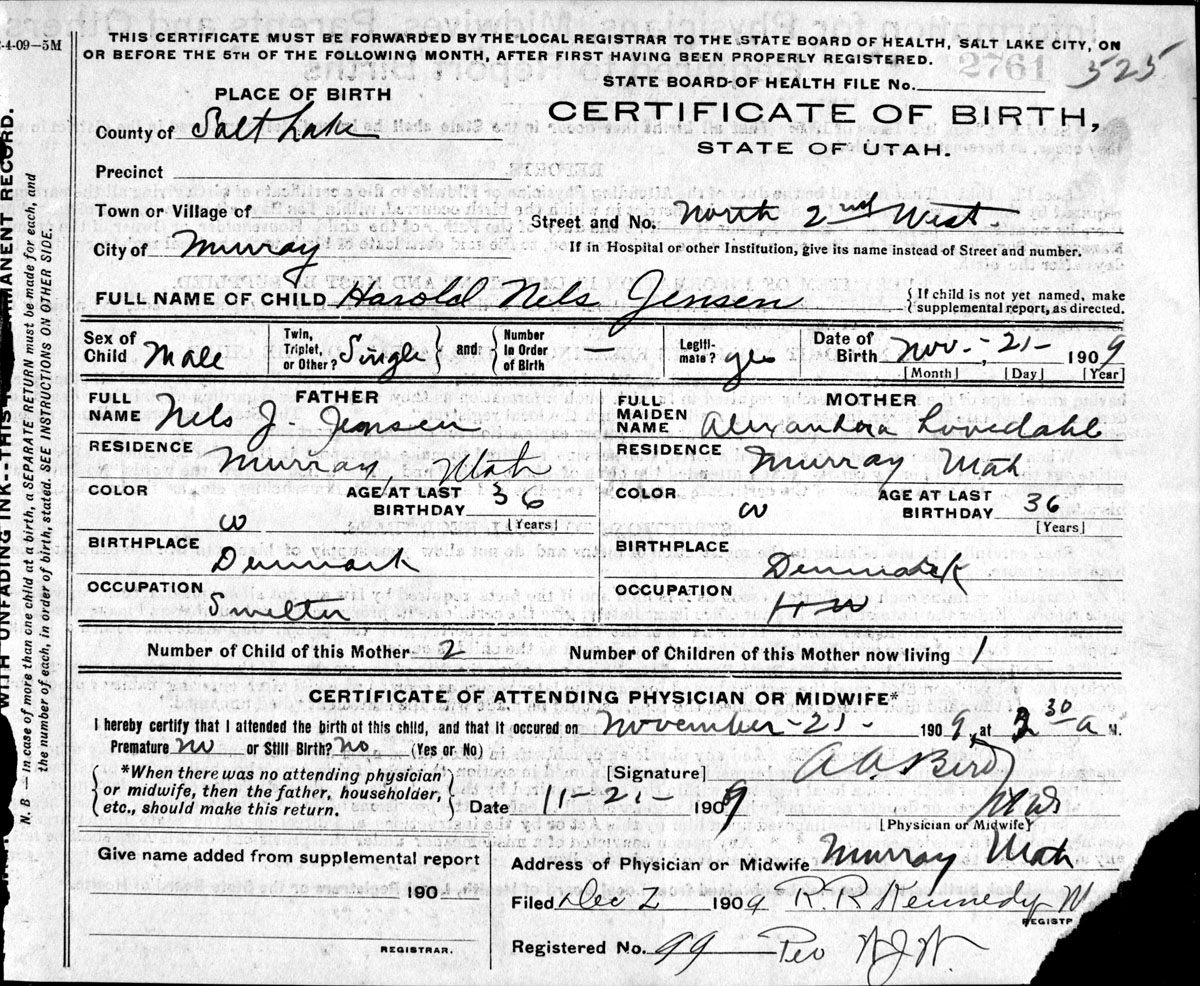 2-4-09—5M
THIS CERTIFICATE MUST BE FORWARDED BY THE LOCAL REGISTRAR TO THE STATE BOARD OF HEALTH, SALT LAKE CITY, ON
OR BEFORE THE 5TH OF THE FOLLOWING MONTH, AFTER FIRST HAVING BEEN PROPERLY REGISTERED.
2761 525
STATE BOARD OF HEALTH FILE No.
PLACE OF BIRTH
CERTIFICATE OF BIRTH,
STATE OF UTAH.
County of Salt Lake
Precinct
Town or Village of
Street and No. North 2nd West
City of Murray
If in Hospital or other Institution, give its name instead of Street and number.
FULL NAME OF CHILD Harold Nels Jensen
{If child is not yet named, make
supplemental report, as directed.
Sex of Child Male
Twin, Triplet, or Other? Single
and
Number in Order of Birth —
Legiti- mate? yes
Date of Birth Nov - 21 - 1909
[Month] [Day] [Year]
FATHER
FULL NAME Nels J. Jensen
RESIDENCE Murray, Utah
COLOR w
AGE AT LAST BIRTHDAY 36
[Years]
BIRTHPLACE Denmark
OCCUPATION Smelter
MOTHER
FULL MAIDEN NAME Alexandora Lovedahl
RESIDENCE Murray Utah
COLOR w
AGE AT LAST BIRTHDAY 36
[Years]
BIRTHPLACE Denmark
OCCUPATION HW
Number of Child of this Mother 2
Number of Children of this Mother now living 1
CERTIFICATE OF ATTENDING PHYSICIAN OR MIDWIFE*
I hereby certify that I attended the birth of this child, and that it occured on November - 21 - 1909, at 30 a M.
Premature no or Still Birth? no (Yes or No)
*When there was no attending physician
or midwife, then the father, householder,
etc., should make this return.
[Signature] A A Bird
Date 11-21- 1909
[Physician or Midwife]
Address of Physician or Midwife Murray Utah
Give name added from supplemental report
190
REGISTRAR.
Filed Dec 2 1909 R. R. Kennedy
Registered No. 99
WITH UNFADING INK--THIS
MANENT RECORD.
N. B.—In case of more than one child at a birth, a SEPARATE RETURN must be made for each, and
the number of each, in order of birth, stated. SEE INSTRUCTIONS ON OTHER SIDE.